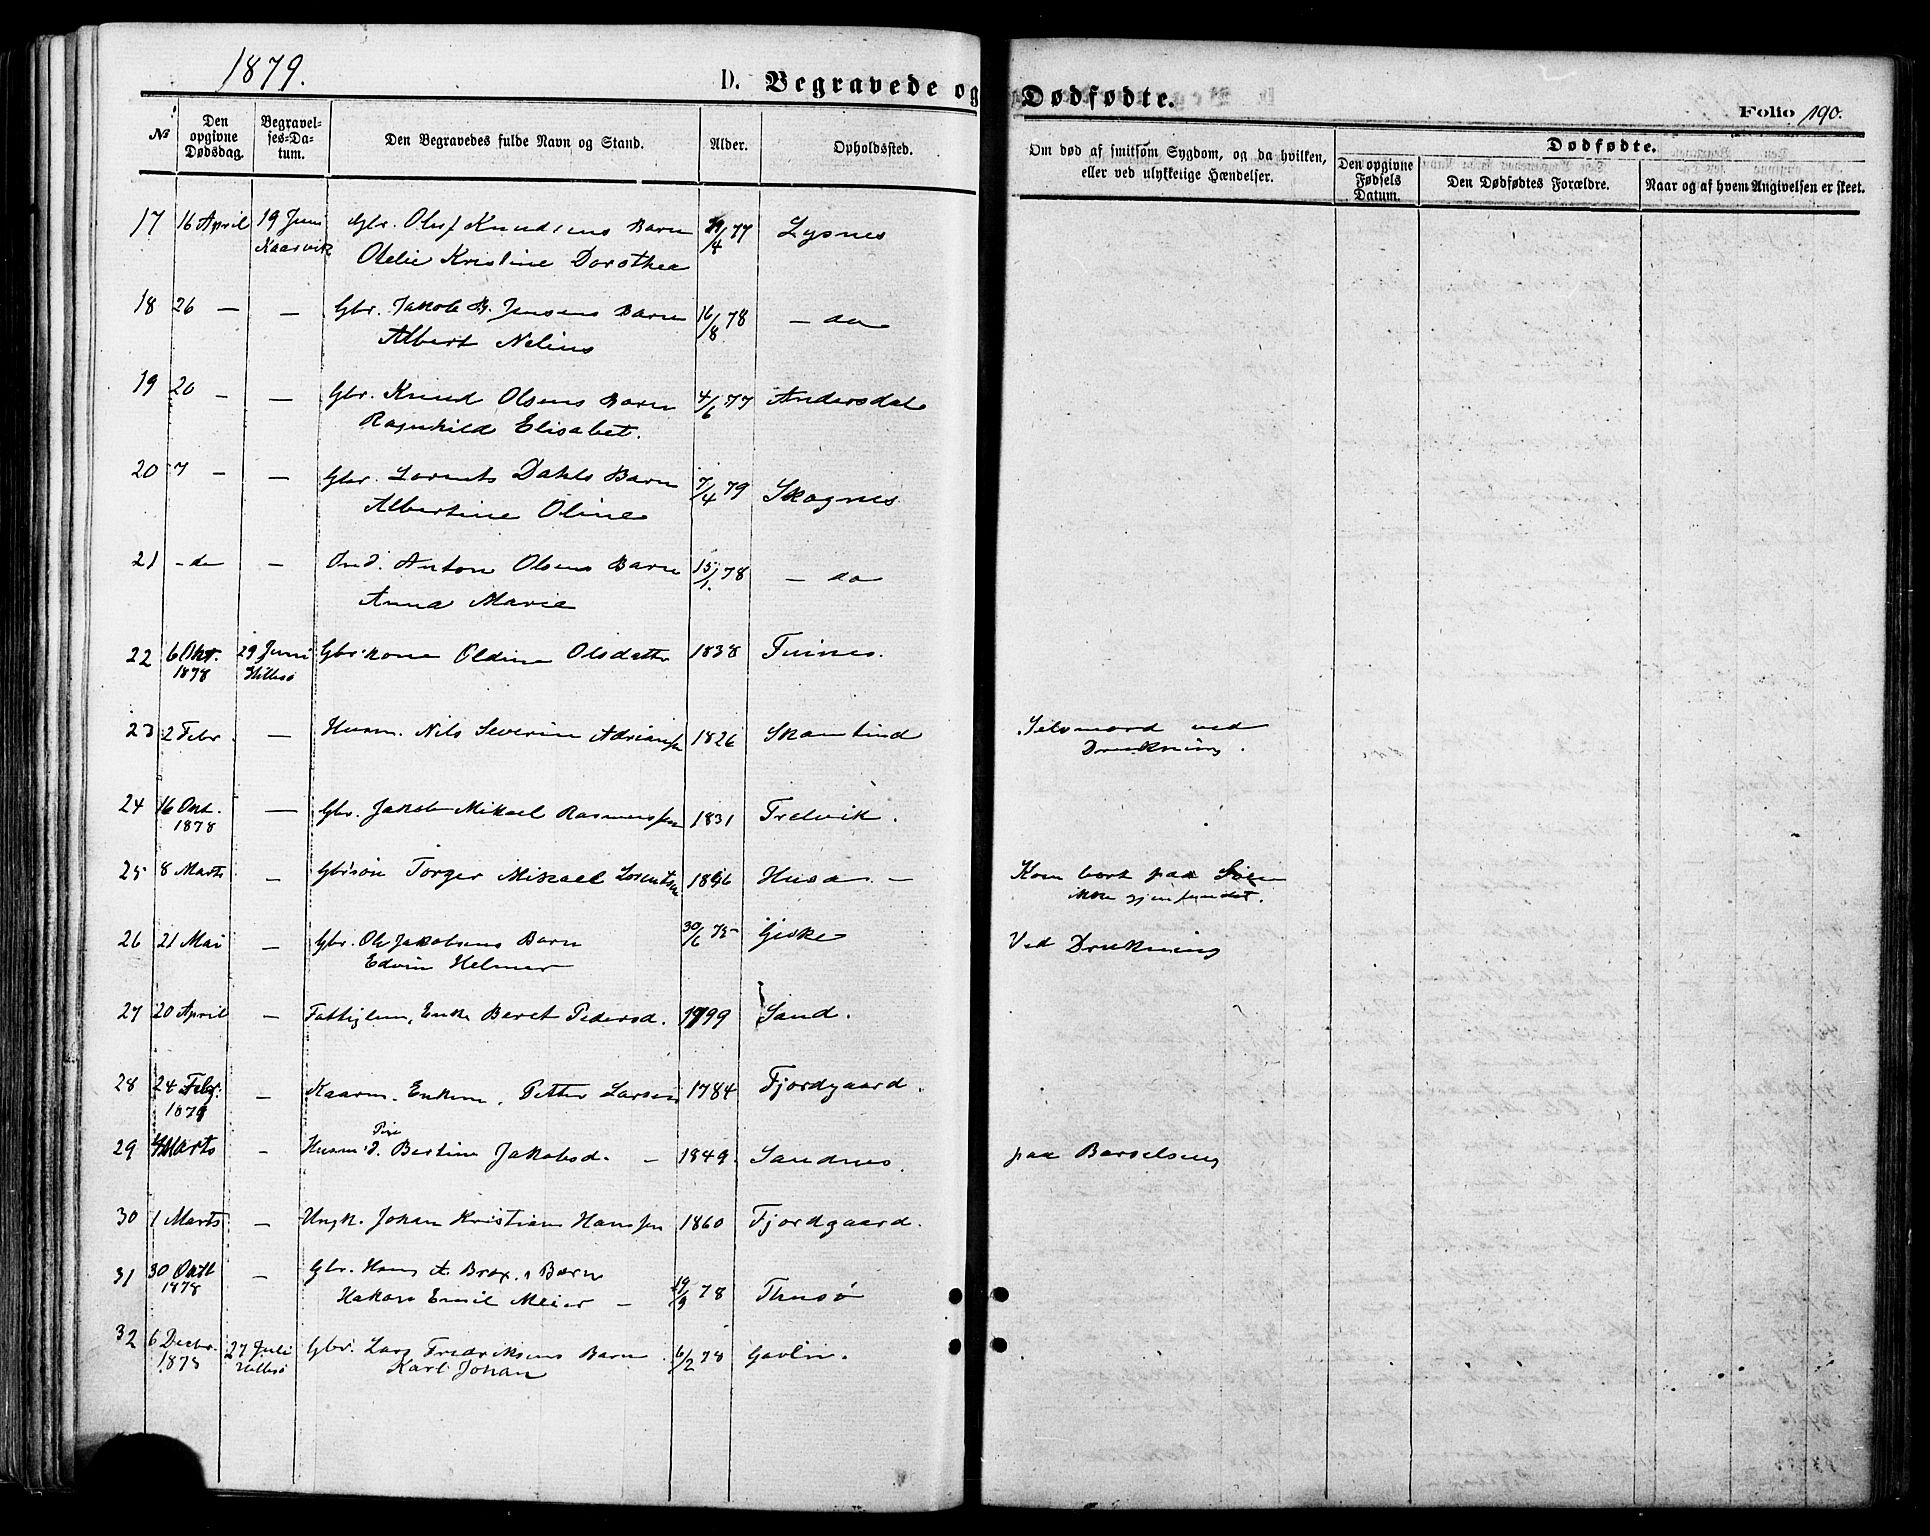 1879.
D. Begravede og Dødfødte.
Folio 190.
№
Den opgivne Dødsdag.
Begravelses-Datum.
Den Begravedes fulde Navn og Stand.
Alder.
Opholdssted.
Om død af smitsom Sygdom, og da hvilken, eller ved ulykkelige Hændelser.
Dødfødte.
Den opgivne Fødsels Datum.
Den Dødfødtes Forældre.
Naar og af hvem Angivelsen er skeet.
17 16 April 19 Juni Gbr. Oluf Knudsens Barn /4 77 Lysnes
Kaarvik Olelie Kristine Dorothea
18 26 — — Gbr. Jakob B. Jensens Barn 16/8 78 — do
Albert Nelius
19 20 — — Gbr. Knud Olsens Barn 4/6 77 Andersdal
Ragnhild Elisabet.
20 7 — — Gbr. Lorents Dahls Barn 7/4 79 Skognes
Albertine Oline
21 - do — Ind. Anton Olsens Barn 15/1. 78 — do
Anna Marie
22 6 Okt. 29 Juni Gbr.kone Oldine Olsdatter 1838 Tuines.
1878 Hillesø
23 2 Febr. — Husm. Nils Severin Adriansen 1826 Skamtind Selvmord ved
Drukning.
24 16 Okt. — Gbr. Jakob Mikael Rasmussen 1831 Trelvik.
1878
25 8 Marts — Gbrsøn Torger Mikael Lorentsen 1856 Husø — Kom bort paa Søen
ikke gjenfundet.
26 21 Mai — Gbr. Ole Jakobsens Barn 30/6 75 Gjøske Ved Drukning
Edvin Helmer
27 20 April — Fattiglem, Enke Beret Pedersd. 1799 Sand.
28 24 Febr. — Kaarm. Enkem. Petter Larsen 1784 Fjordgaard.
1879
29 4 Marts — Husm.d. Pige Bertine Jakobsd. — 1849. Sandnes. paa Barselseng
30 1 Marts — Ungk. Johan Kristian Hanssen 1860 Fjordgaard.
31 30 Oktb — Gbr. Hans A. Brox.s Barn
1878 Hakon Emil Meier — 19/9 78 Thusø
32 6 Decbr. 27 Juli Gbr. Lars Fredriksens Barn 6/2 78 Gavlen.
1878 Hillesø Karl Johan